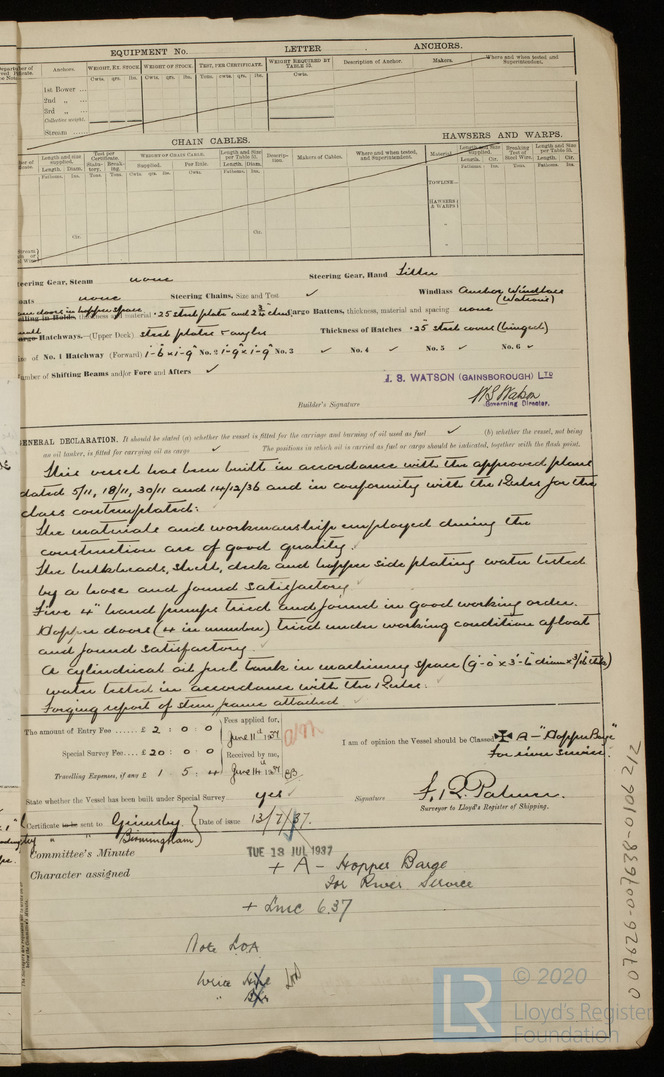 EQUIPMENT No. LETTER ANCHORS.
Anchors. WEIGHT, EX. STOCK. WEIGHT OF STOCK. TEST, PER CERTIFICATE. WEIGHT REQUIRED BY TABLE 53. Description of Anchor. Makers. Where and when tested and Superintendents.
Cwts. qrs. lbs. Cwts. qrs. lbs. Tons. cwts. qrs. lbs. Cwts.
1st Bower ...
2nd „ ...
3rd „ ...
Collective weight.
Stream
CHAIN CABLES. HAWSERS AND WARPS.
Length and size supplied. Test per Certificate. WEIGHT OF CHAIN CABLE. Length and Size per Table 53. Description. Makers of Cables. Where and when tested, and Superintendents. Material. Length and Size Supplied. Breaking Test of Steel Wire. Length and Size per Table 53.
Length. Diam. Statutory. Breaking. Supplied. Per Rule. Length. Diam. Length. Cir. Length. Cir.
Fathoms. Ins. Tons. Tons. Cwts. qrs. lbs. Cwts. Fathoms. Ins. Fathoms. Ins. Tons. Fathoms. Ins.
TOWLINE...
HAWSERS & WARPS
Cir. Cir.
Steering Gear, Steam none Steering Gear, Hand Tiller
Boats none Steering Chains, Size and Test ✓ Windlass Anchor Windlass (Watson's)
doors in hopper space
Ceiling in Holds, thickness and material .25 steel plate and Cargo Battens, thickness, material and spacing none
Cargo Hatchways.—(Upper Deck) steel plates & angles Thickness of Hatches .25 steel covers (hinged)
Size of No. 1 Hatchway (Forward) 1'-6" x 1'-9" No. 2 1'-9" x 1'-9" No. 3 ✓ No. 4 ✓ No. 5 ✓ No. 6 ✓
Number of Shifting Beams and/or Fore and Afters ✓
J. S. WATSON (GAINSBOROUGH) LTD
Builder's Signature W S Watson
Governing Director.
GENERAL DECLARATION. It should be stated (a) whether the vessel is fitted for the carriage and burning of oil used as fuel ✓ (b) whether, not being
an oil tanker, is fitted for carrying oil as cargo ✓ The positions in which oil is carried as fuel or cargo should be indicated, together with the flash point.
This vessel has been built in accordance with the approved plans
dated 5/11, 18/11, 30/11 and 14/12/36 and in conformity with the Rules for the
class contemplated:
The materials and workmanship employed during the
construction are of good quality.
The bulkheads, shell, deck and hopper side plating water tested
by a hose and found satisfactory
Five 4" hand pumps tried and found in good working order.
Hopper doors (4 in number) tried under working condition afloat
and found satisfactory.
A cylindrical oil fuel tank in machinery space (9'-0" x 3'-6" diam x 3/16 thk)
water tested in accordance with the Rules.
Forging report of stem frame attached
The amount of Entry Fee ...... £ 2 : 0 : 0 Fees applied for, June 11th 1937
Special Survey Fee.... £ 20 : 0 : 0 Received by me,
Travelling Expenses, if any £ 1 5 4 June 14th 1937
I am of opinion the Vessel should be Classed ✠ A - "Hopper Barge"
For river service.
State whether the Vessel has been built under Special Survey yes Signature F. R. Palmer
Surveyor to Lloyd's Register of Shipping.
Certificate to be sent to Grimsby Date of issue 13/7/37.
" " Birmingham
Committee's Minute TUE 13 JUL 1937
Character assigned + A - Hopper Barge
for River Service
+ LMC 6.37
Note LOA
Write
"
007626-007638-0106 2/2
LR © 2020
Lloyd's Register
Foundation